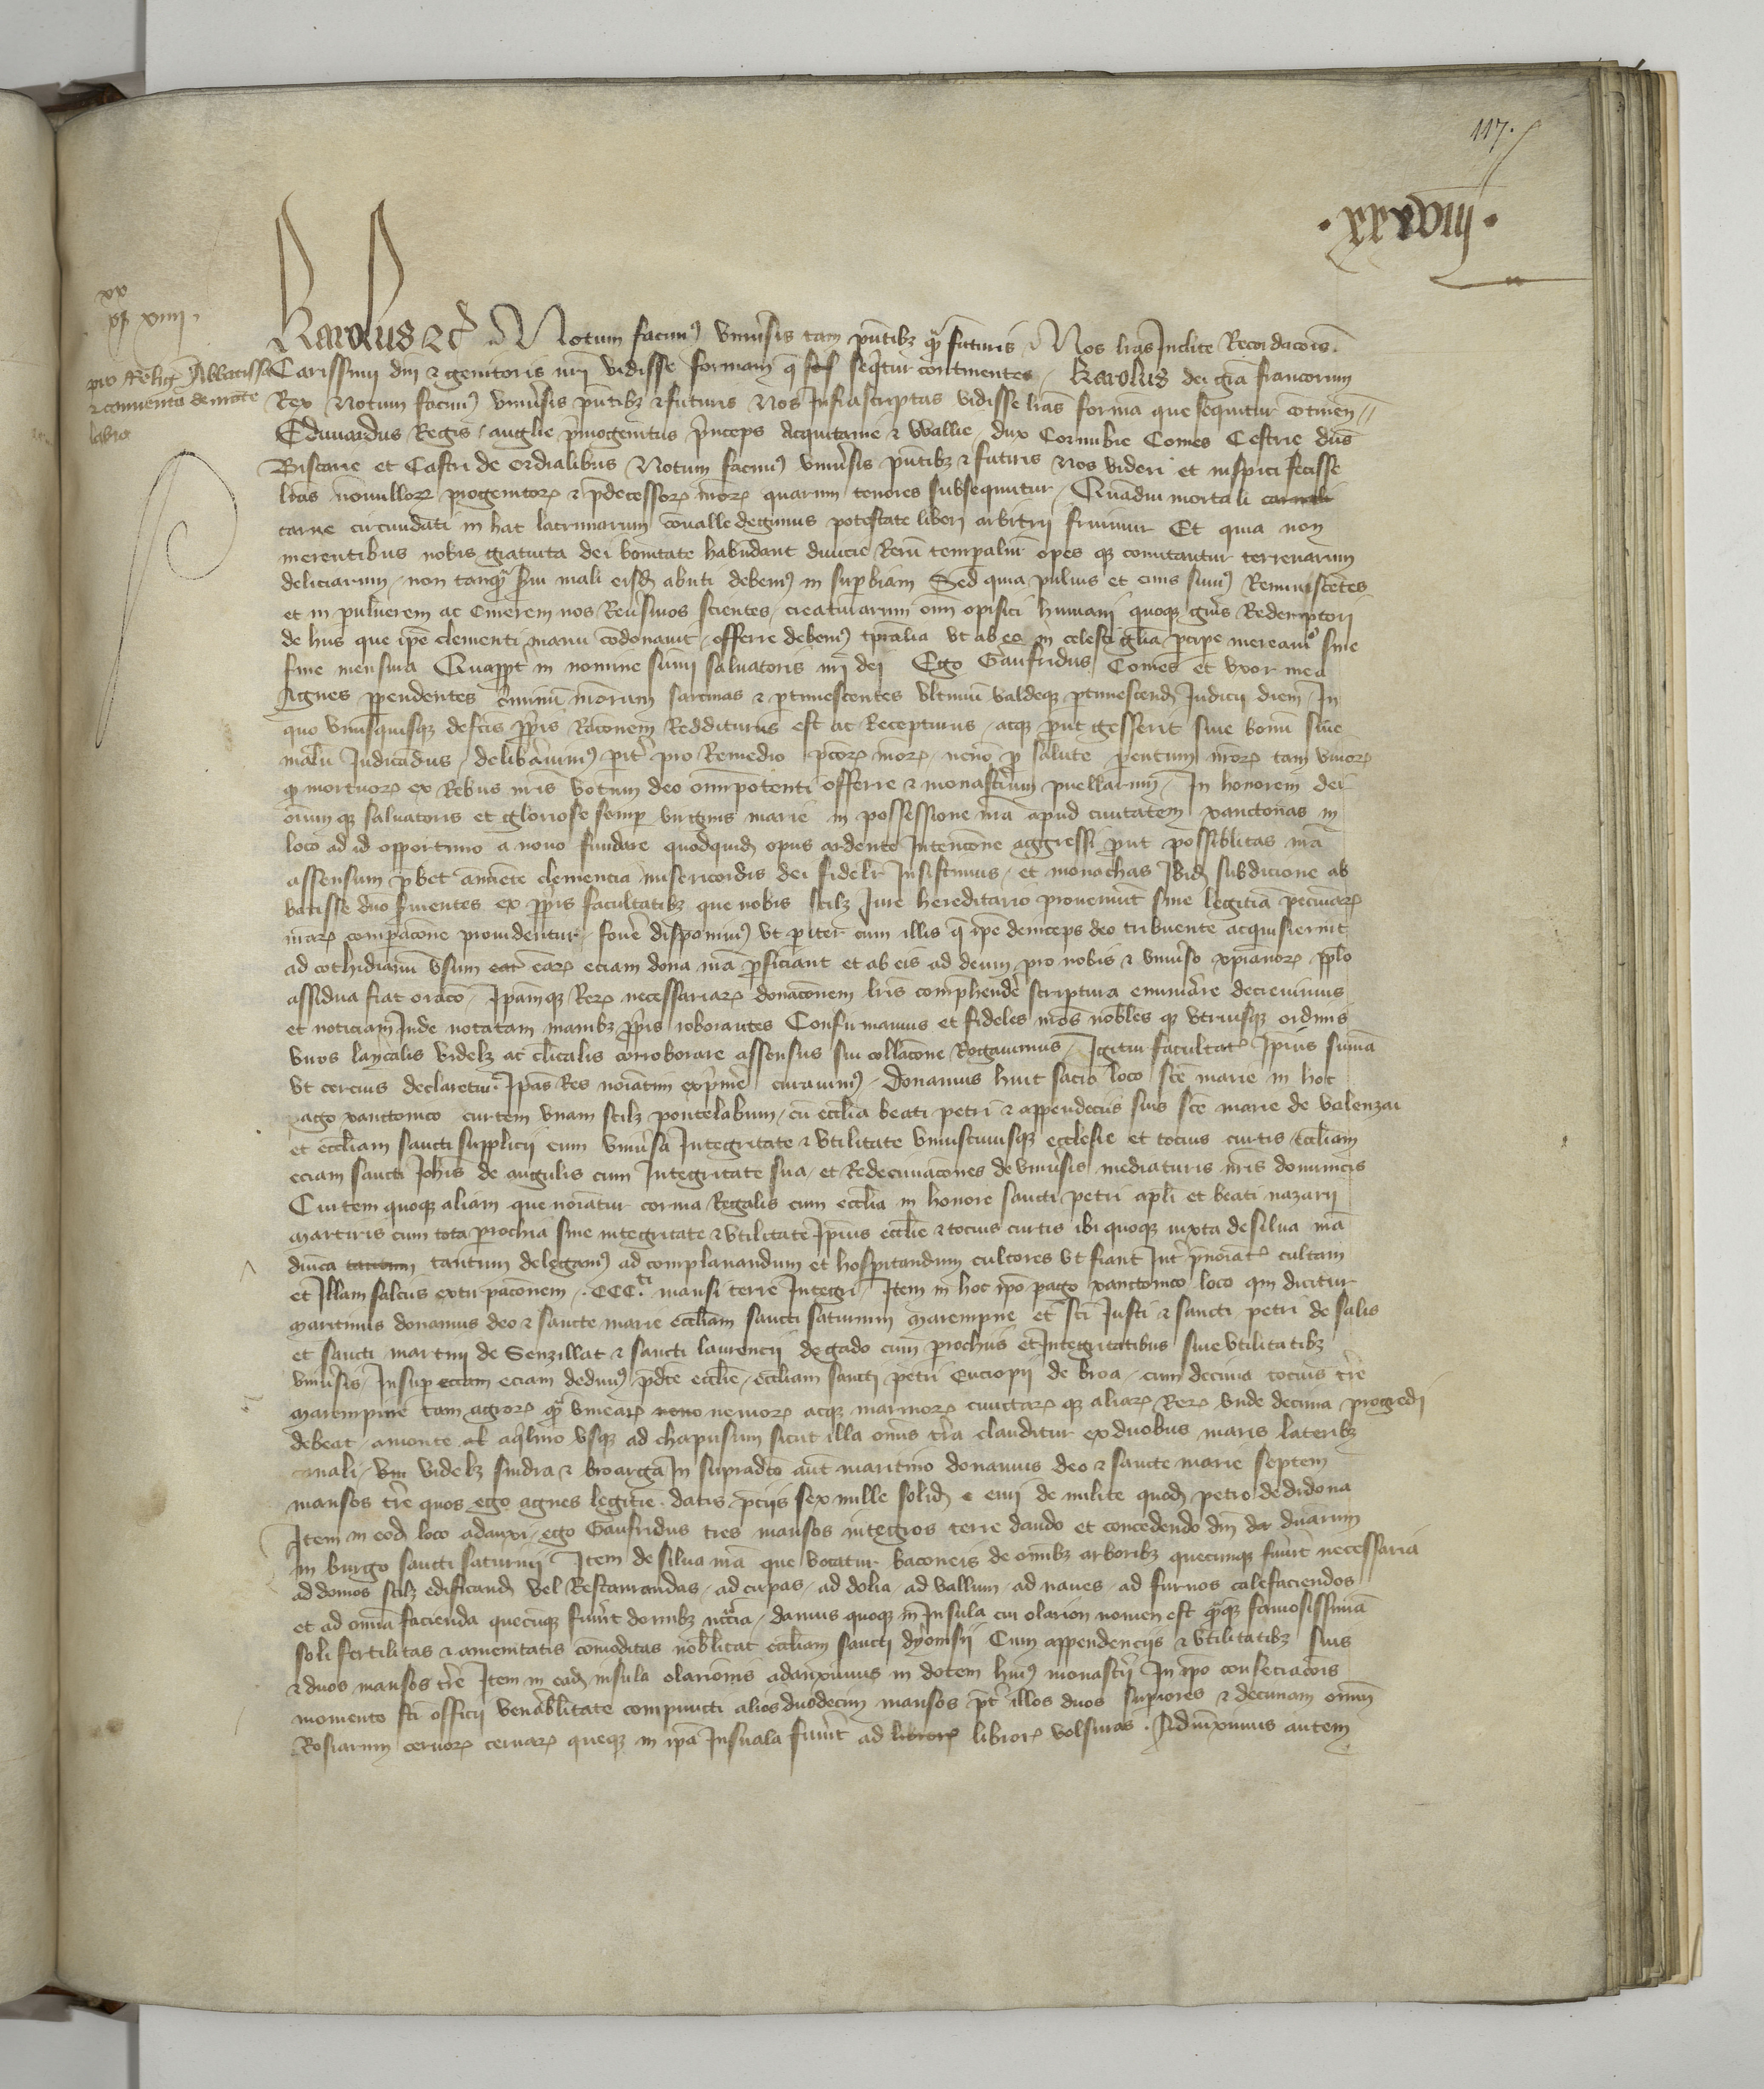 117.
.xxxviii.
xx
xiiii.
pro Relig. Abbatissa
et conventu de
Karolus etc. Notum facimus universis tam pñtibꝫ qᷓ futuris Nos lras Inclite Recordacoĩs
Carissimi dñi & genitoris nri vidisse formam q̃ seq̃tur continentes Karolus dei grã francorum
Rex Notum facimꝰ univsis pñtibꝫ & futuris Nos Infrascriptas vidisse lras formã que sequitur cõtinen
Eduuardus Regis anglie pmogenitus princeps Acquitanie & Wallie dux Cornubie Comes Cestrie dñs
Biscaie et Castri de ordialibus Notum facimꝰ univsis pñtibꝫ & futuris nos videri et inspici fecisse
lras nõnulloꝝ progenitoꝝ & pdecessoꝝ nroꝝ quarum tenores subsequntur Quãdiu mortali
carne circundati in hac lacrimarum cõvalle degimus potestate liberi arbitrii fruimur Et quia non
merentibus nobis gratuita dei bonitate habũdant divicie Rerũ temporaliũ opes qꝫ comitantur terrenarum
deliciarum non tanqᷓ mali eisdẽ abuti debemꝰ in supbiam Sed quia pulvis et cinis sumꝰ Reminiscẽtes
et in pulverem ac cinerem nos Revsuros scientes creaturarum oĩm opifici humani quoqꝫ gñis Redemptori
de hiis que ipẽ clementi manu cõdonavit offerre debemꝰ tpralia ut ab eo in celesti glia pcipe mereamꝰ sine
fine mensura Quappt in nomine sũmi salvatoris nri dei Ego Gaufridus Comes et uxor mea
Agnes ppendentes criminũ nrorum sarcinas & ptimescentes ultimũ valdeqꝫ ptimescendẽ Judicii diem In
quo unusquisqꝫ de fcis ppis Racõnem Redditurus est ac Recepturus acqꝫ put gesserit sive bonũ sive
malũ Judicãdus deliberavimꝰ pit pro Remedio pctoꝝ nroꝝ necnõ p salute parentum nroꝝ tam vivoꝝ
qᷓ mortuoꝝ ex Rebus nris votum deo omipotenti offerre & monastium puellarum In honorem dei
omniumqꝫ salvatoris et gloriose semp virginis marie in possessione nra apud civitatem xanctonas in
loco ad id opportuno a novo fundare quodquidẽ opus ardente Intencõne aggressi put possibilitas nra
assensum pbet annuente clemencia misericordis dei fidelr Insistimus et monachas Ibidẽ subdicione ab
batisse deo svientes ex ppis facultatibꝫ que nobis scilꝫ iure hereditario provenerũt sive legitiã pecuniaꝝ
nraꝝ compacõne providentur fovẽ disponimꝰ ut pariter cum illis q̃ ipẽ deinceps deo tribuente acquisierint
ad cothidianũ usum eaꝝ eciam dona nra pficiant et ab eis ad deum pro nobis & univso xpianoꝝ pplo
assidua fiat oracõ Ipamqꝫ Reꝝ necessariaꝝ donacõnem lris comphendẽ scriptura enumerare decrevimus
et noticiam Inde notatam manibꝫ ppis roborantes Confirmamus et fideles nros nobles qꝫ utriusqꝫ ordinis
viros laycalis videlꝫ ac clicalis corroborare assensus sui collacõne Rogavimus Igitur facultatꝫ Ipius summã
ut cercius declaretur Ipas Res noiatim exprimẽ curavimꝰ Donamus huic sacro loco scẽ marie in hoc
pago xanctonico curtem unam scilꝫ pontelabum cũ ecclia beati petri & appendeciis suis scẽ marie de valenzai
et eccliam sancti supplicii cum univsa Integritate & utilitate uniuscuiusqꝫ ecclesie et tocius curtis eccliam
eciam sancti Johis de angulis cum Integritate sua et Redecimacões de univsis mediaturis nris dominicis
Curtem quoqꝫ aliam que noiatur corma Regalis cum ecclia in honore sancti petri apli et beati nazarii
martiris cum tota parochia sive integritate & utilitate Ipius ecclie & tocius curtis ibi quoqꝫ iuxta de silva nra
dñica tantum delegamꝰ ad complanandum et hospitandum cultores ut fiant Int pnoiatꝫ cultam
et Illam saltus extirpacõnem CCCti mansi terre Integri Item in hoc ipo pago xanctonico loco qui dicitur
maritimis donamus deo & sancte marie eccliam sancti saturnini marempnie et sci Justi & sancti petri de salis
et sancti martini de Senzillat & sancti laurencii de gado cum parochiis et Integritatibus sive utilitatibꝫ
univsis Insup eciam dedimꝰ pdcte ecclie eccliam sancti petri euciopii de broa cum decima tocius tre
marempnie tam agroꝝ qᷓ vineaꝝ nemoꝝ acqꝫ marinoꝝ cunctaꝝ qꝫ aliaꝝ Reꝝ unde decima progredi
debeat a monte usqꝫ ad chapusum sicut illa omis tra clauditur ex duobus maris lateribꝫ
canali videlꝫ sindra & broarga In supradcto aut maritimo donamus deo & sancte marie septem
mansos tre quos ego agnes legitie datis pciis sex mille solidẽ emi de milite quodẽ petro de didona
Item in eodẽ loco adauxi ego Gaufridus tres mansos integros terre dando et concedendo duarum
in burgo sancti saturnii Item de silva nra que vocatur baconeis de omibꝫ arboribꝫ quecumqꝫ fuint necessaria
ad domos scilꝫ edificandẽ vel Restaurandas ad cupas ad dolia ad vallum ad naves ad furnos calefaciendos
et ad omia facienda quecũqꝫ fuint domibꝫ nccria damus quoqꝫ in Insula cui olarion nomen est famosissimã
soli fertilitas & amenitatis cõmoditas nobilitat eccliam sancti dyonisii Cum appendenciis & utilitatibꝫ suis
& duos mansos tre Item in eadẽ insula olarionis adauximus in dotem huiꝰ monastii In ipo consecracõis
momento sci officii venerabilitate compuncti alios duodecim mansos pt illos duos supiores & decimam omniũ
Rosiarum cervoꝝ cervaꝝ queqꝫ in ipa Insuala fuint ad libroꝝ volsuras Adiũximus autem